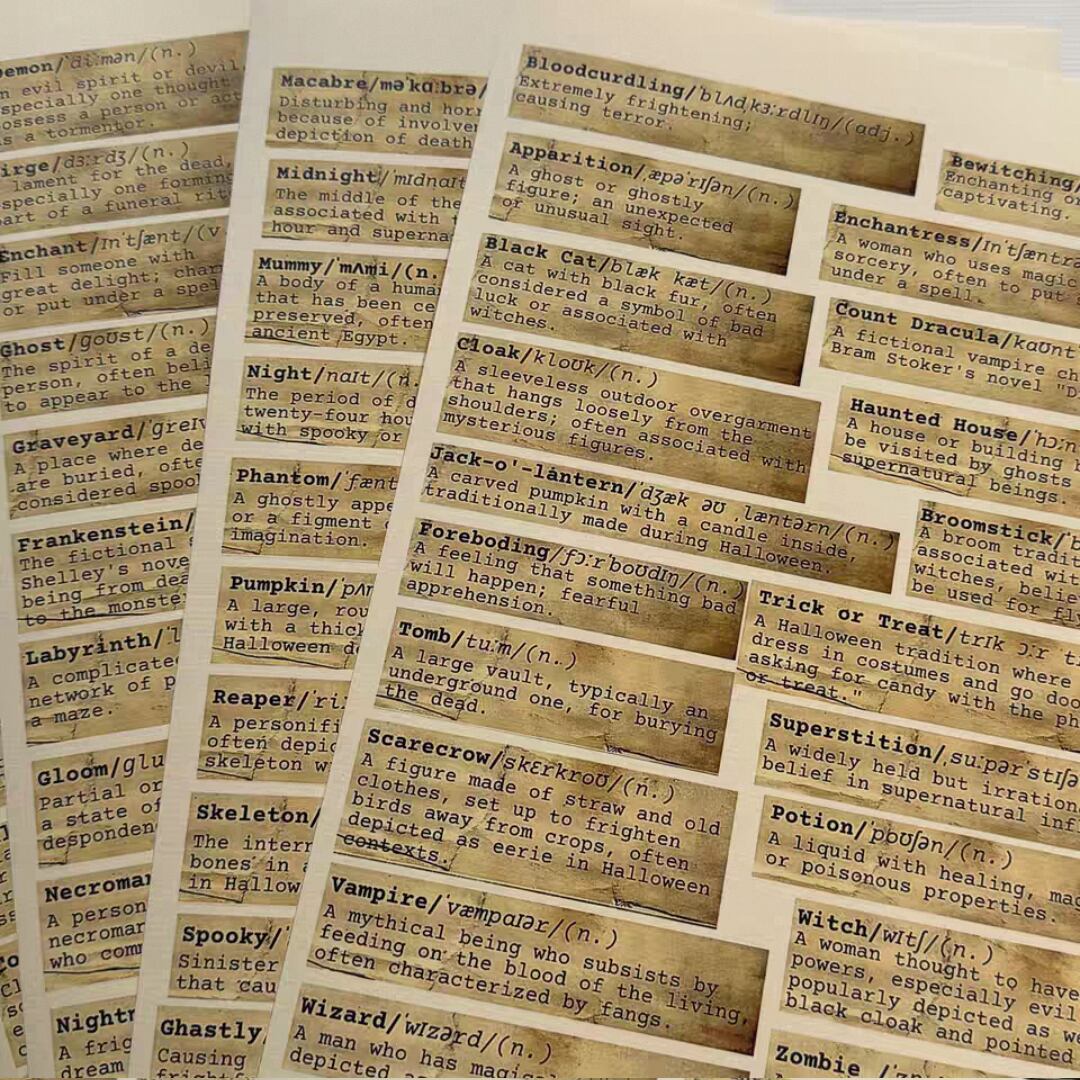 Demon/ˈdiːmən/(n.)
n evil spirit or devil,
specially one thought
ossess a person or act
s a tormentor.
irge/dɜːrdʒ/(n.)
lament for the dead,
specially one forming
art of a funeral rit
Enchant/ɪnˈtʃænt/(v
Fill someone with
great delight; char
or put under a spel
Ghost/ɡoʊst/(n.)
The spirit of a de
person, often beli
to appear to the l
Graveyard/ˈɡreɪv
A place where de
are buried, ofte
considered spoo
Frankenstein/
The fictional
Shelley's nove
being from dea
to the monste
Labyrinth/ˈl
A complicate
network of p
a maze.
Gloom/ɡlu
Partial or
a state of
desponden
Necroman
A person
necroman
who comm
Nightm
A frig
dream
Macabre/məˈkɑːbrə/
Disturbing and horr
because of involvem
depiction of death
Midnight/ˈmɪdnaɪt
The middle of the
associated with t
hour and superna
Mummy/ˈmʌmi/(n.
A body of a human
that has been ce
preserved, often
ancient Egypt.
Night/naɪt/(n.
The period of d
twenty-four hou
with spooky or
Phantom/ˈfænt
A ghostly appe
or a figment o
imagination.
Pumpkin/ˈpʌm
A large, rou
with a thick
Halloween de
Reaper/ˈriː
A personifi
often depic
skeleton w
Skeleton/
The intern
bones in a
in Hallow
Spooky/ˈ
Sinister
that cau
Ghastly/
Causing
frightf
Bloodcurdling/ˈblʌdˌkɜːrdlɪŋ/(adj.)
Extremely frightening;
causing terror.
Apparition/ˌæpəˈrɪʃən/(n.)
A ghost or ghostly
figure; an unexpected
or unusual sight.
Black Cat/blæk kæt/(n.)
A cat with black fur, often
considered a symbol of bad
luck or associated with
witches.
Cloak/kloʊk/(n.)
A sleeveless outdoor overgarment
that hangs loosely from the
shoulders; often associated with
mysterious figures.
Jack-o'-lantern/ˈdʒæk əʊ ˌlæntərn/(n.)
A carved pumpkin with a candle inside,
traditionally made during Halloween.
Foreboding/fɔːrˈboʊdɪŋ/(n.)
A feeling that something bad
will happen; fearful
apprehension.
Tomb/tuːm/(n.)
A large vault, typically an
underground one, for burying
the dead.
Scarecrow/ˈskɛrkroʊ/(n.)
A figure made of straw and old
clothes, set up to frighten
birds away from crops, often
depicted as eerie in Halloween
contexts.
Vampire/ˈvæmpaɪər/(n.)
A mythical being who subsists by
feeding on the blood of the living,
often characterized by fangs.
Wizard/ˈwɪzərd/(n.)
A man who has magic
depicted as
Bewitching/
Enchanting or
captivating.
Enchantress/ɪnˈtʃæntrə
A woman who uses magic
sorcery, often to put
under a spell.
Count Dracula/kaʊnt
A fictional vampire ch
Bram Stoker's novel "D
Haunted House/ˈhɔːn
A house or building
be visited by ghosts
supernatural beings.
Broomstick/ˈb
A broom tradit
associated wit
witches, belie
be used for fly
Trick or Treat/trɪk ɔːr t
A Halloween tradition where
dress in costumes and go doo
asking for candy with the ph
or treat."
Superstition/ˌsuːpərˈstɪʃə
A widely held but irration
belief in supernatural infl
Potion/ˈpoʊʃən/(n.)
A liquid with healing, mag
or poisonous properties.
Witch/wɪtʃ/(n.)
A woman thought to have
powers, especially evil
popularly depicted as we
black cloak and pointed
Zombie